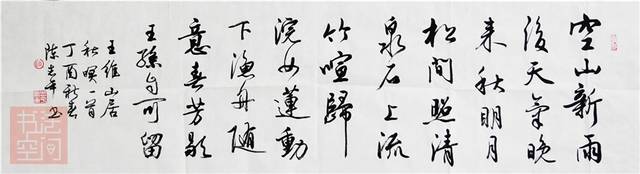 空山新雨
後天氣晚
来秋明月
松間照清
泉石上流
竹喧歸
浣女蓮動
下漁舟随
意春芳歇
王孫自可留
王維山居
秋暝一首
丁酉春
陈书
书法空间